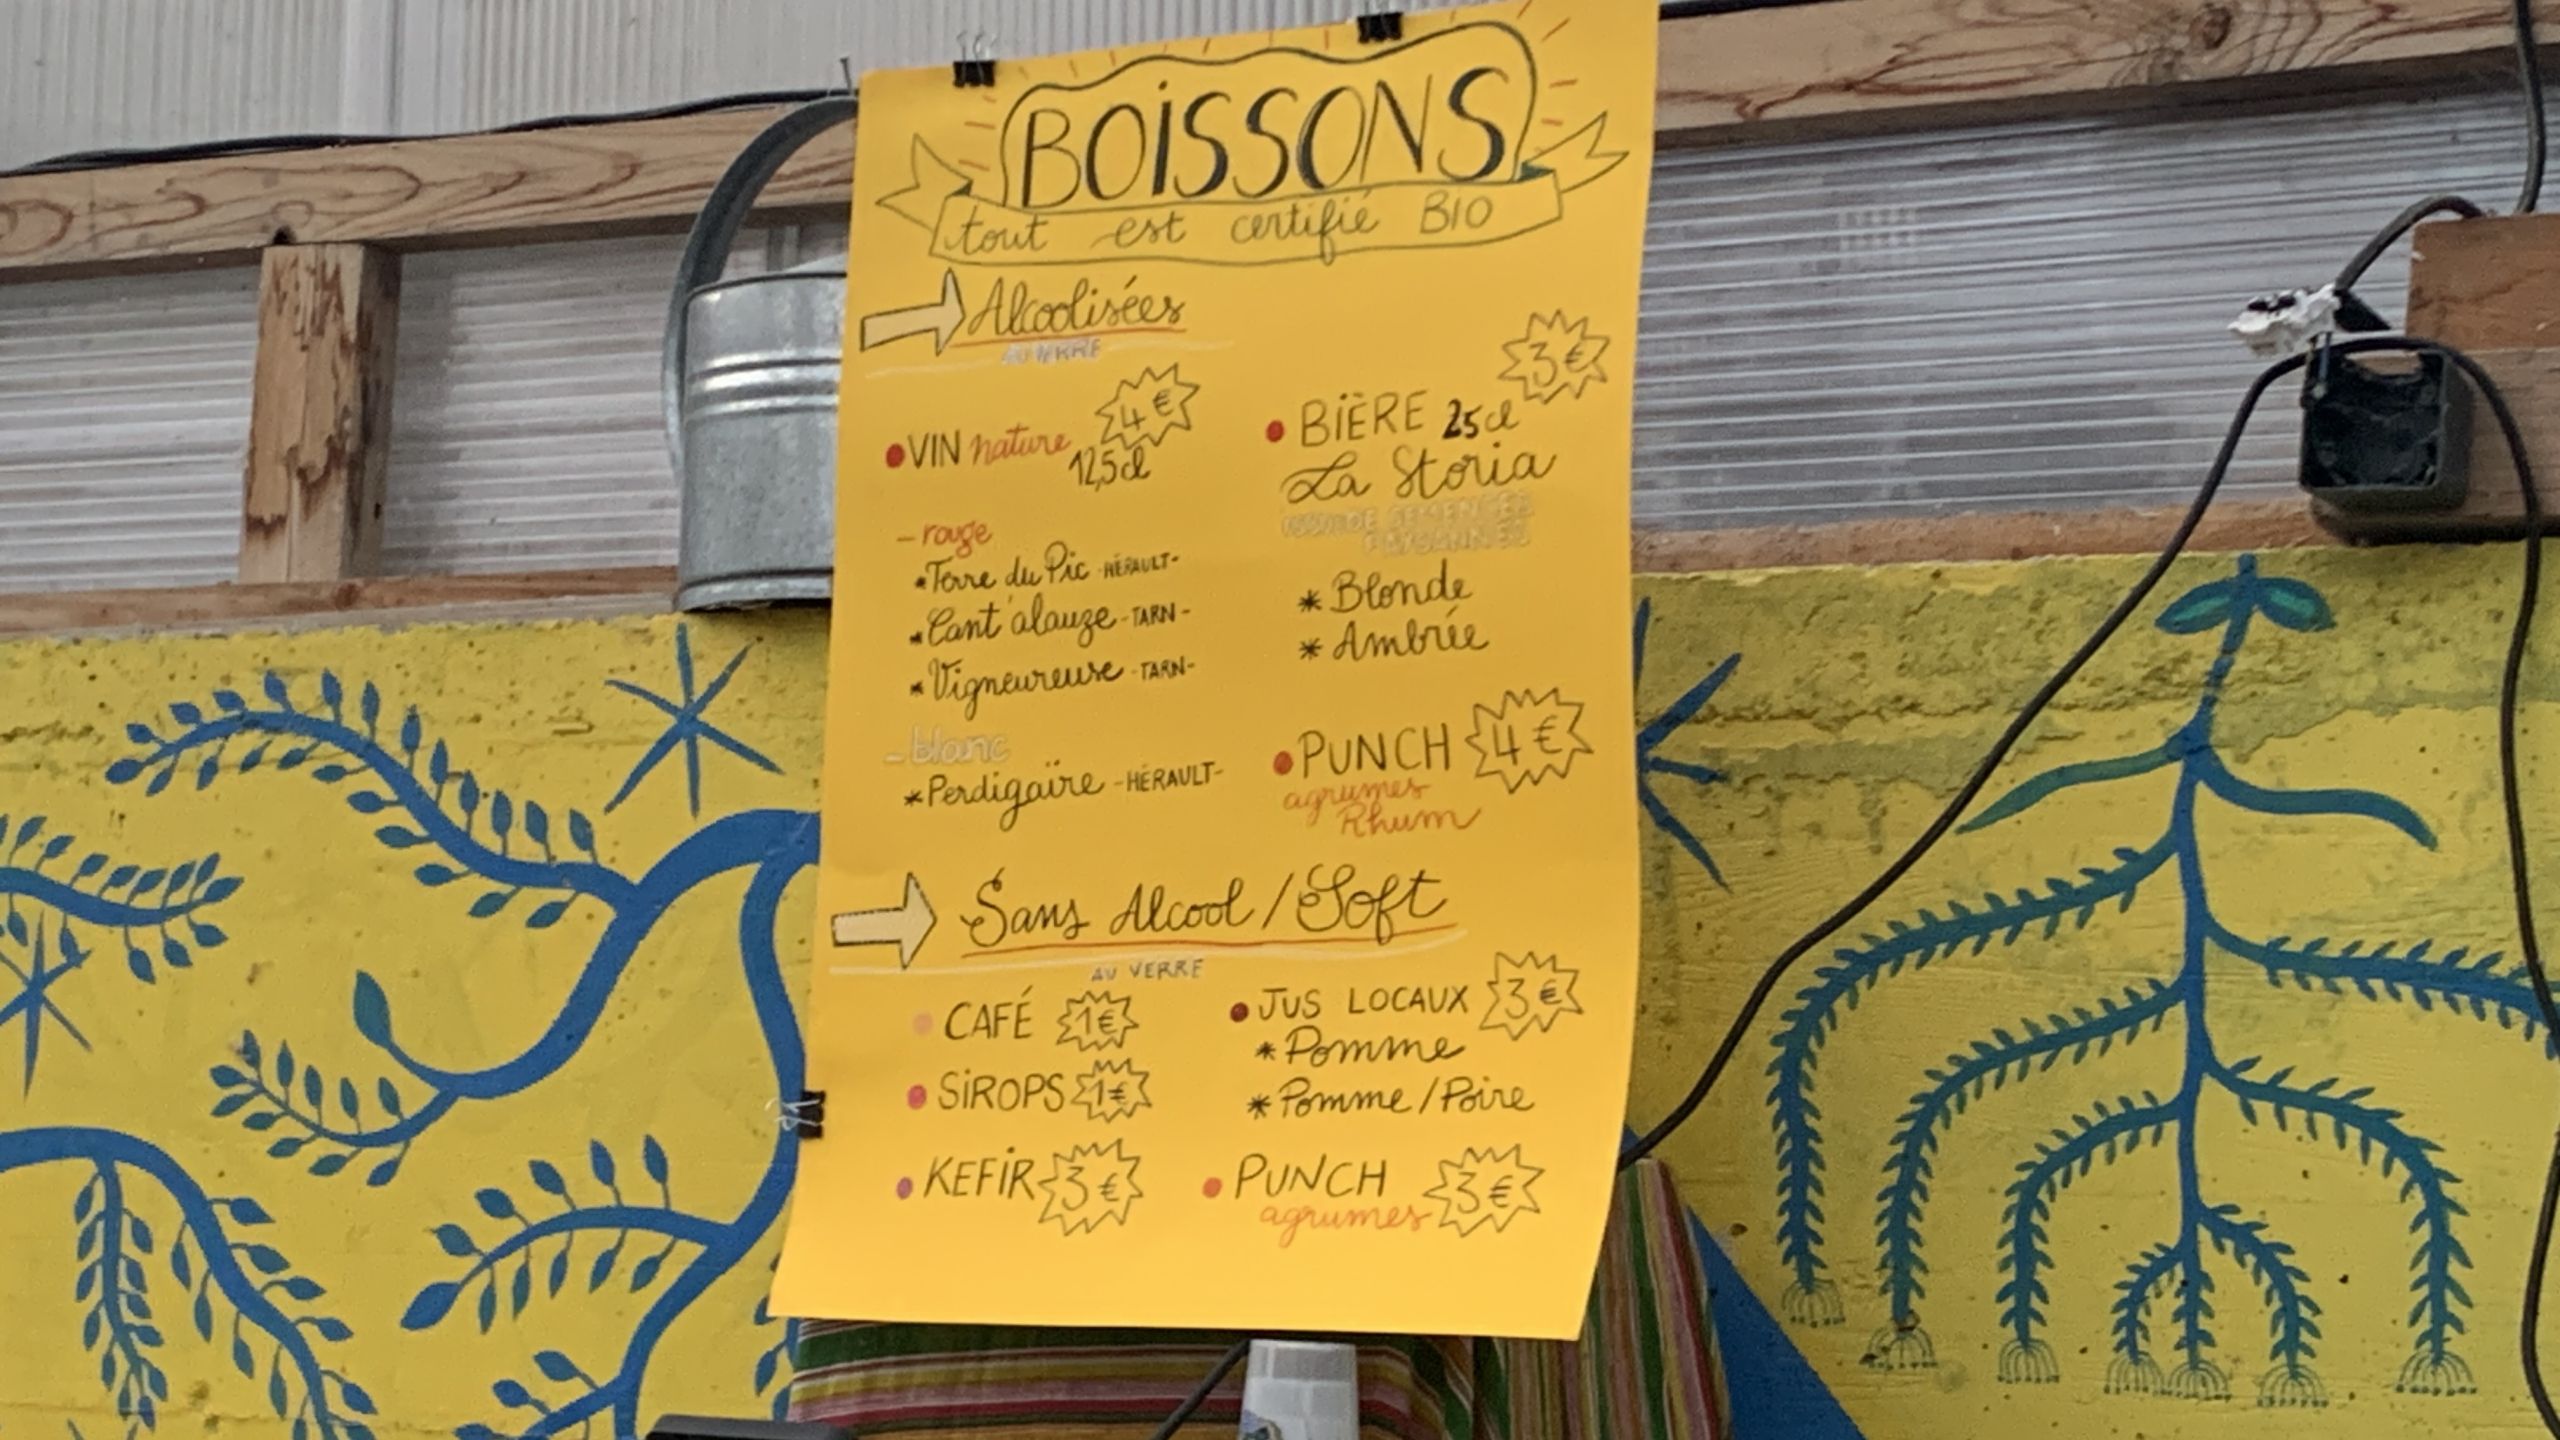 BOISSONS
tout est certifié BIO
Alcoolisées
AU VERRE
VIN nature 4€
12,5cl
- rouge
* Terre du Pic - HÉRAULT -
* Cant'alauze - TARN -
* Vigneureuse - TARN -
- blanc
* Perdigaïre - HÉRAULT -
3€
BIÈRE 25cl
La Storia
ISSUE DE SEMENCES
PAYSANNES
* Blonde
* Ambrée
PUNCH 4€
agrumes
Rhum
Sans Alcool / Soft
AU VERRE
CAFÉ 1€
SIROPS 1€
KEFIR 3€
JUS LOCAUX 3€
* Pomme
* Pomme / Poire
PUNCH 3€
agrumes